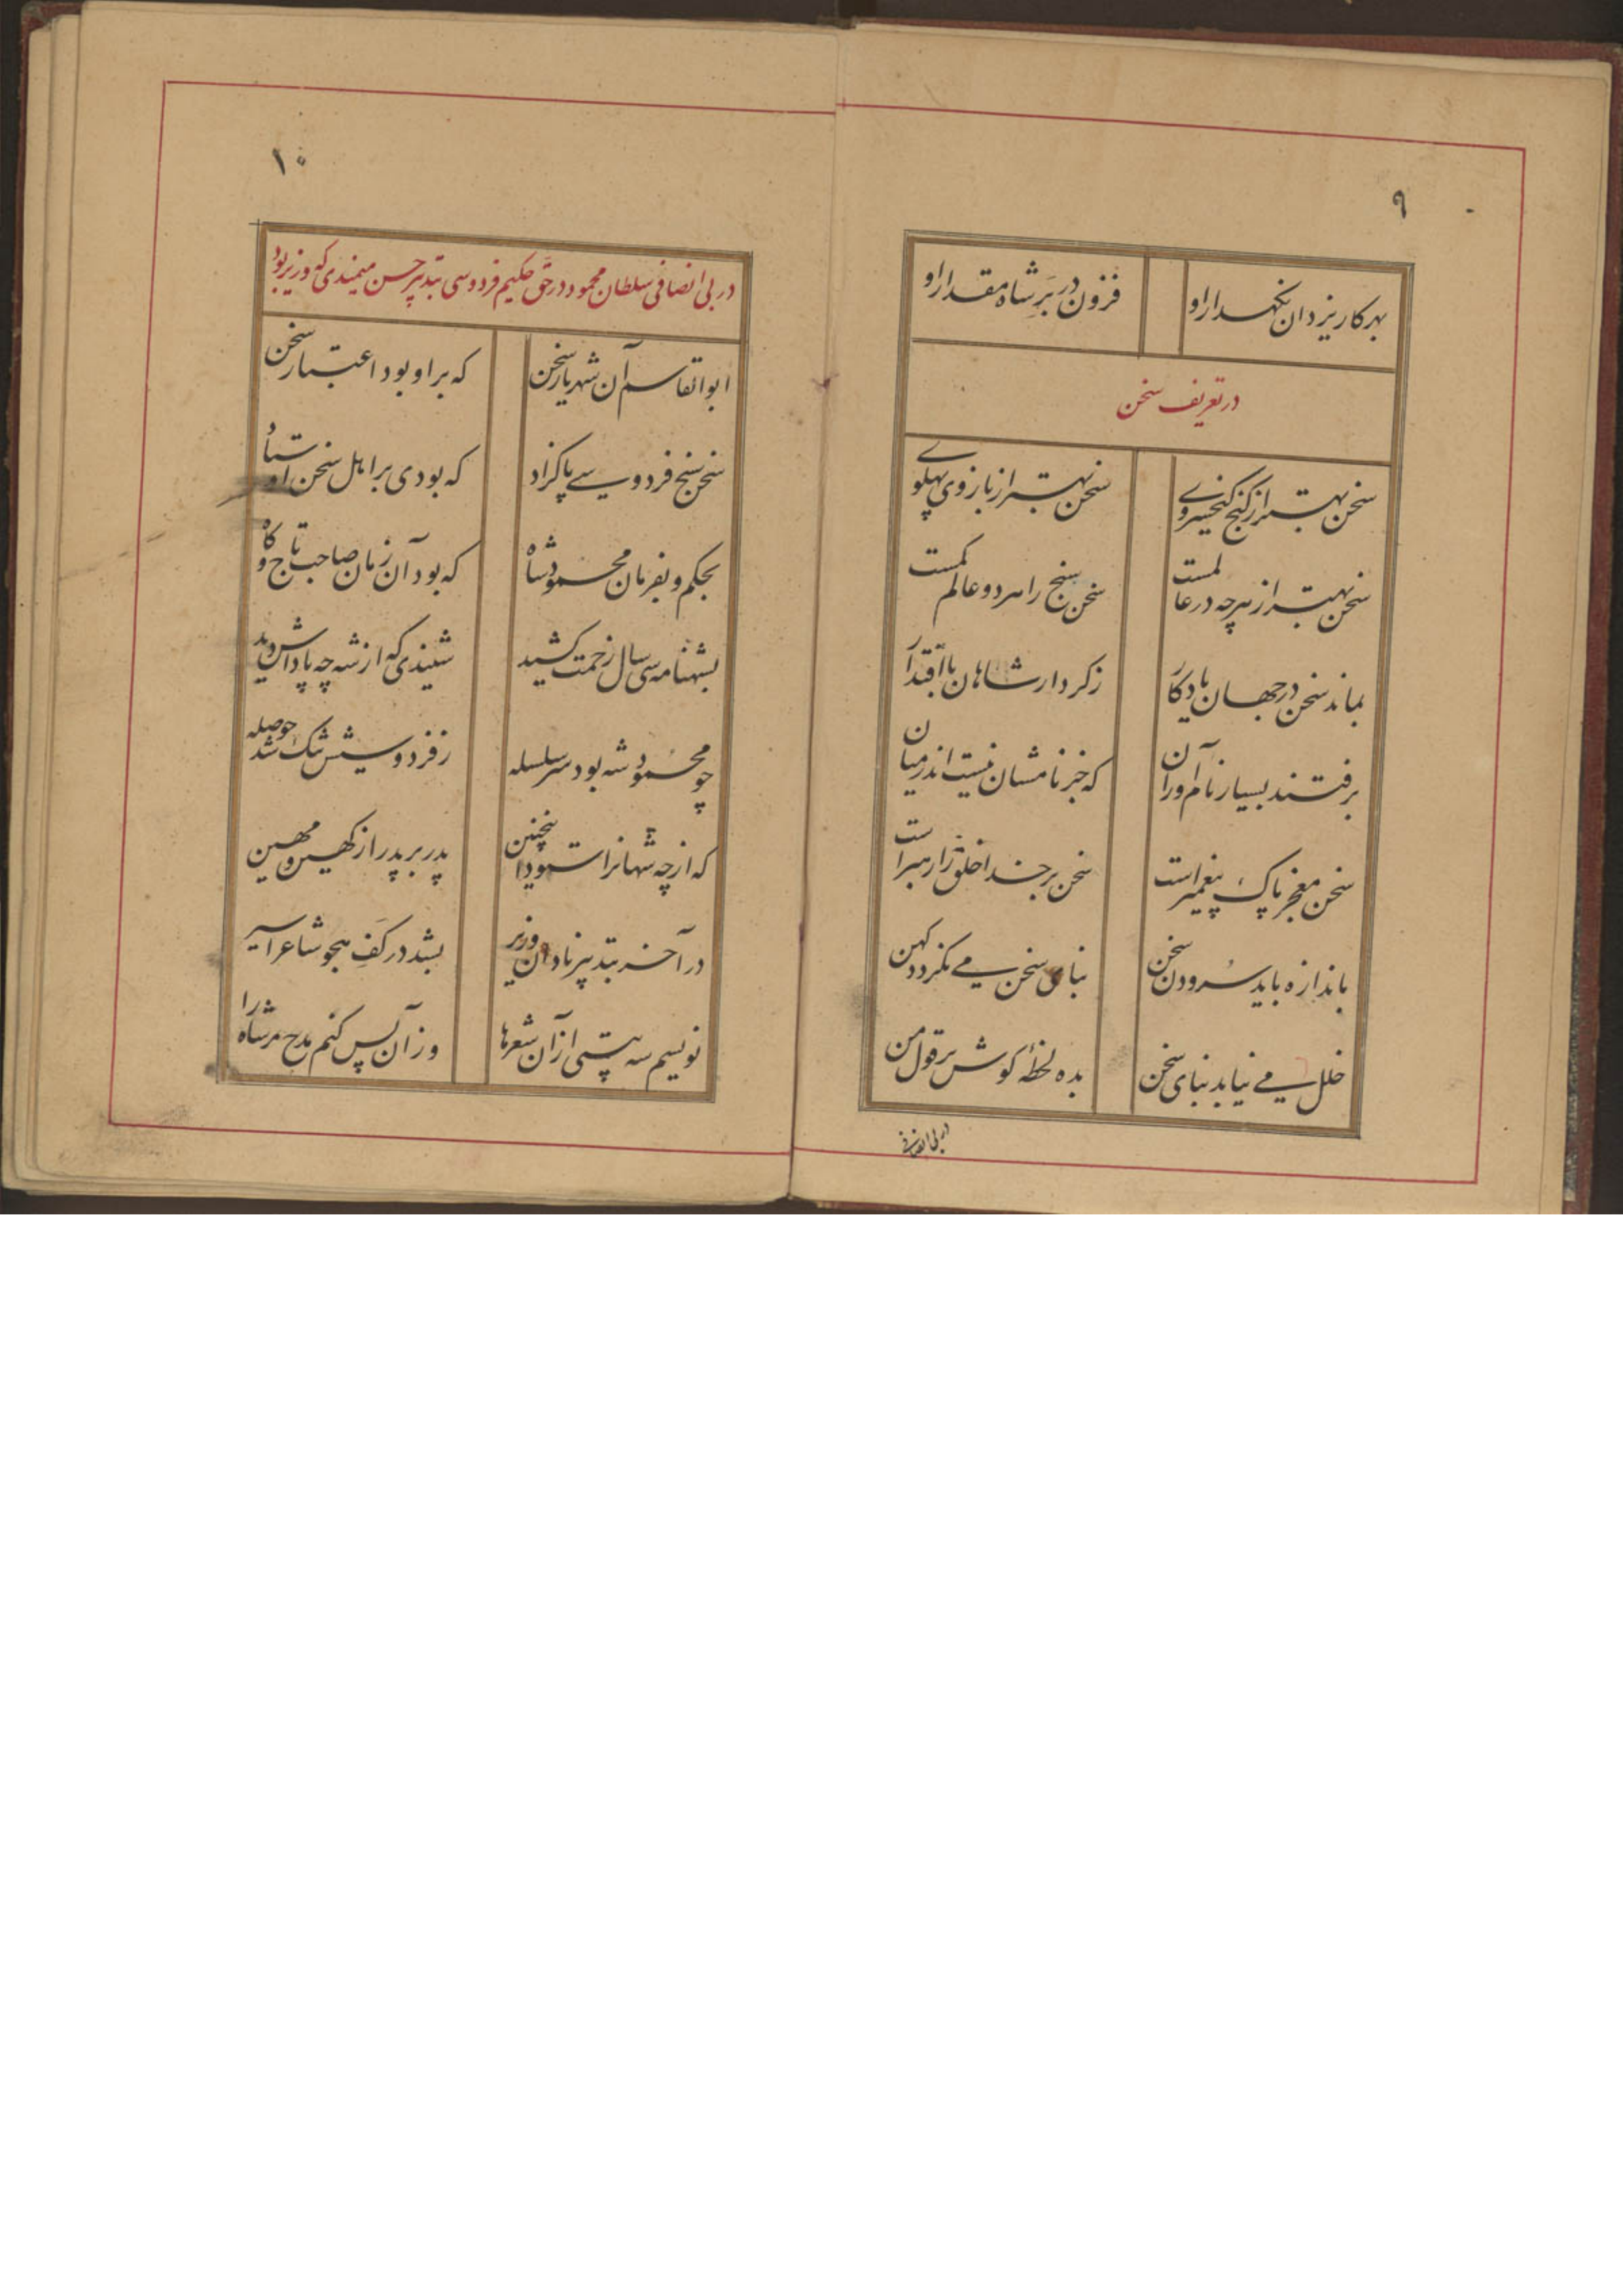 ۹
بهر کار یزدان نگهدار او فزون در بر شاه مقدار او
در تعریف سخن
سخن بهتر از گنج کیخسروے سخن بهتر از بازوی پهلوے
سخن بهتر از هرچه در عالمست سخن سنج را هر دو عالم کمست
بماند سخن در جهان یادگار ز کردار شاهان با اقتدار
برفتند بسیار نام آوران که جز نامشان نیست اندر میان
سخن معجز پاک پیغمبر است سخن بر خدا خلق را رهبر است
باندازه باید سرودن سخن بنای سخن مے نگردد کهن
خلل مے نیابد بنای سخن بده لحظهٔ گوش بر قول من
در بی انصافی
۱۰
در بی انصافی سلطان محمود در حق حکیم فردوسی بتدبیر حسن میمندی که وزیر بود
ابوالقاسم آن شهریار سخن که بر او بود اعتبار سخن
سخن سنج فردوسے پاکزاد که بودی بر اهل سخن اوستاد
بحکم و بفرمان محمود شاه که بود آن زمان صاحب تاج و گاه
بشهنامه سی سال زحمت کشید شنیدی که از شه چه پاداش دید
چو محمود شه بود سر سلسله ز فردوسیش تنگ شد حوصله
که از چه شهانرا ستود اینچنین پدر بر پدر از کهین و مهین
در آخر بتدبیر نادان وزیر بشد در کف هجو شاعر اسیر
نویسم سه بیتی از آن شعرها وز آن پس کنم مدح مر شاه را